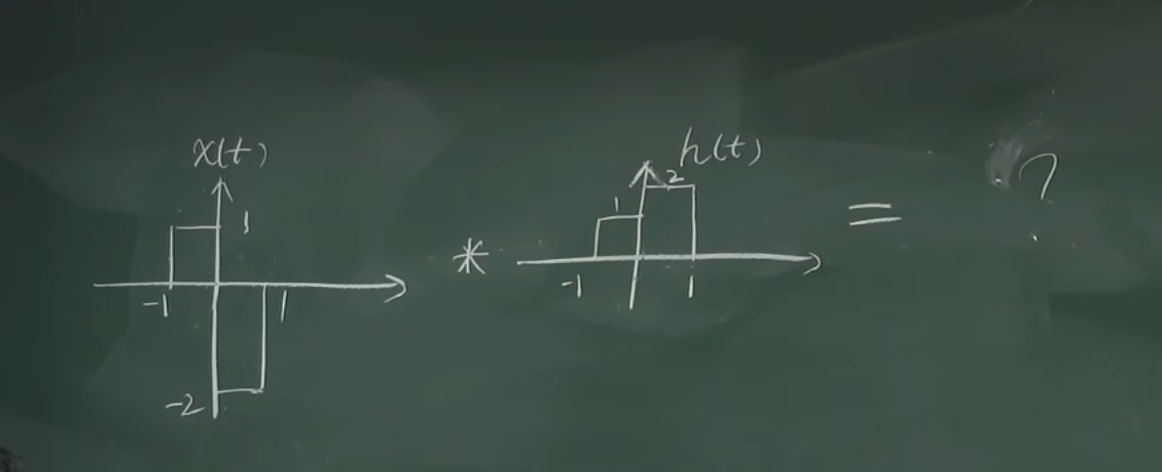 x(t)
1
-1
1
-2
*
h(t)
2
1
-1
1
=
?